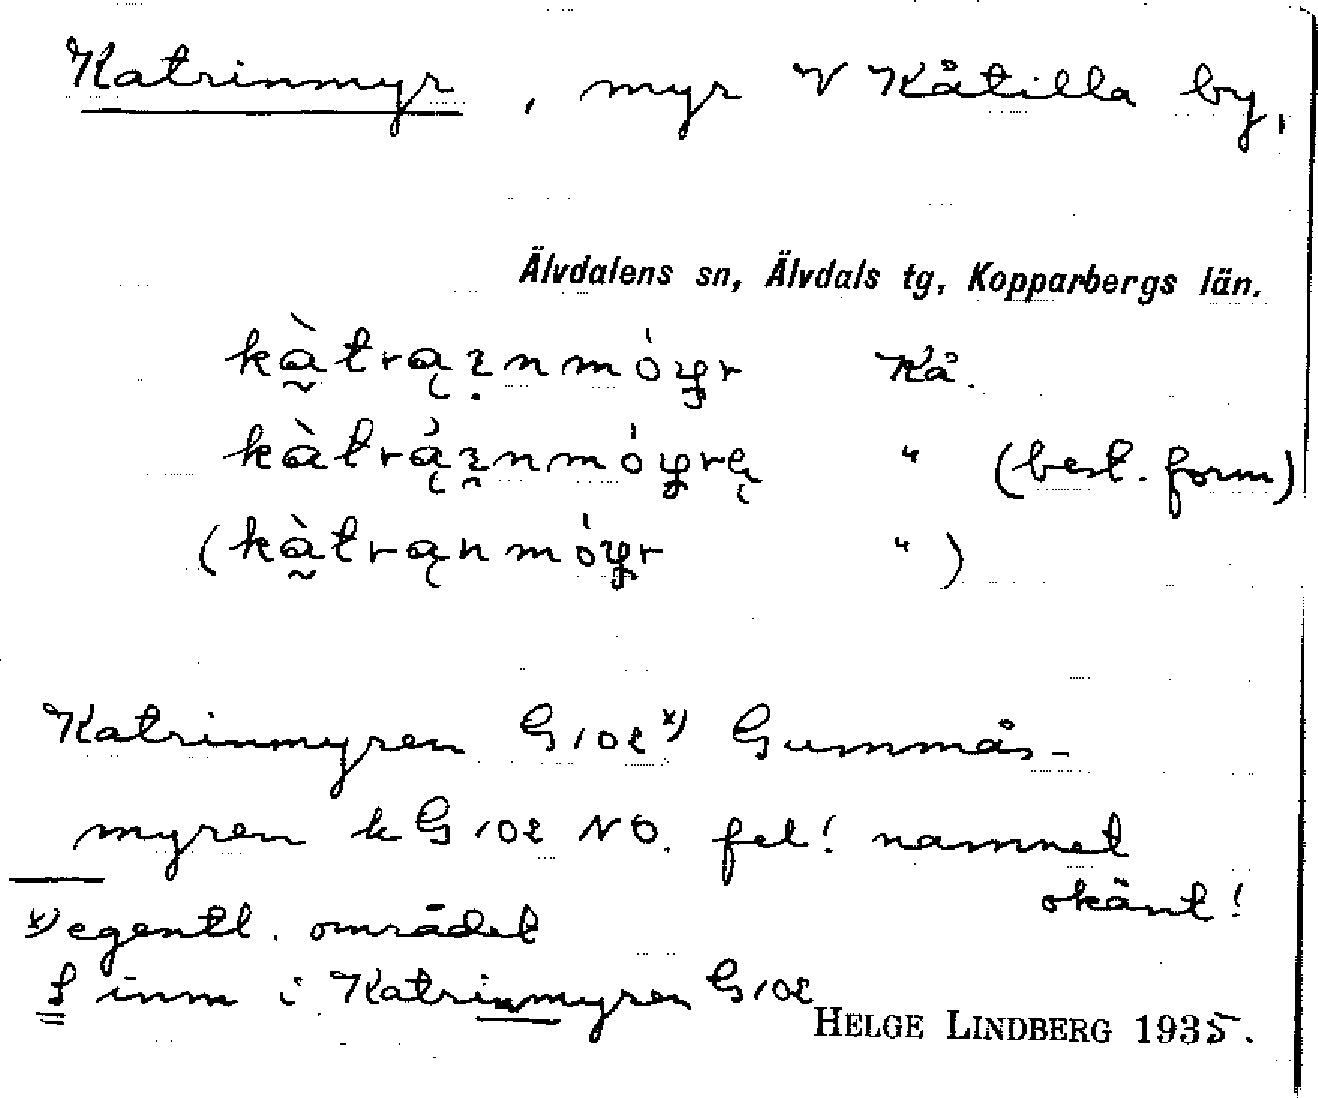 Katrinmyr, myr V Kåtilla by,
Älvdalens sn, Älvdals tg, Kopparbergs län.
Kå.
" (best. form)
( " )
Katrinmyren G102 x) Gummås-
myren k G102 NO. fel! namnet
okänt!
x) egentl. området
S inm i Katrinmyren G102
HELGE LINDBERG 1935.